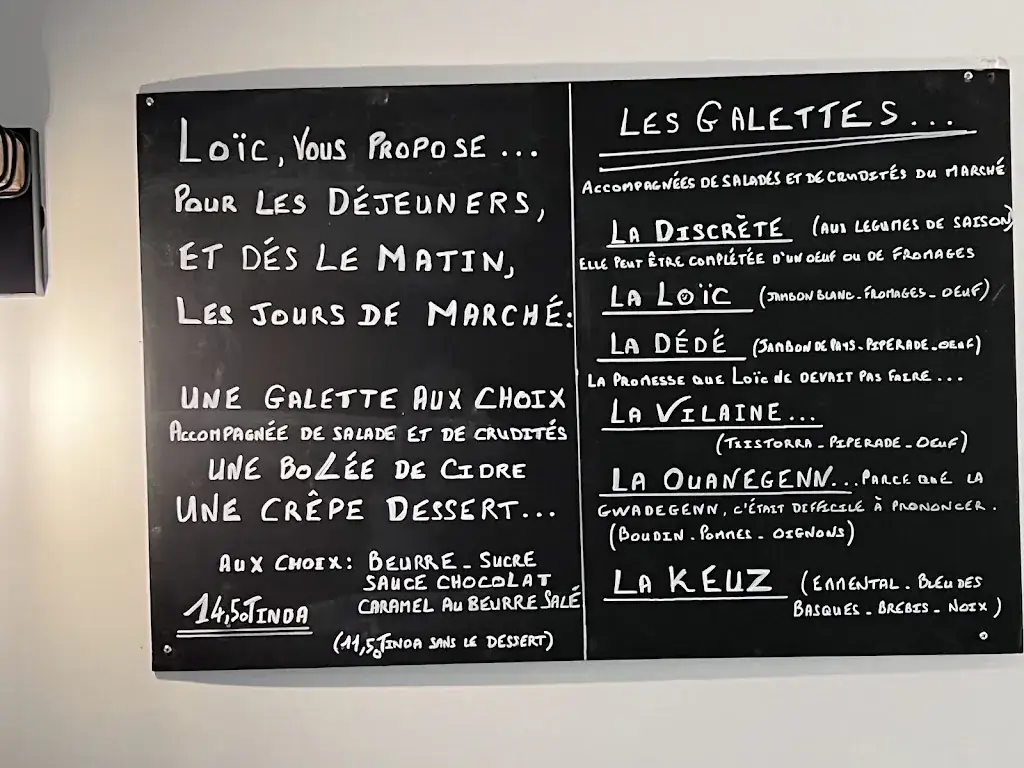 LOÏC, VOUS PROPOSE...
POUR LES DÉJEUNERS,
ET DÉS LE MATIN,
LES JOURS DE MARCHÉ:
UNE GALETTE AUX CHOIX
ACCOMPAGNÉE DE SALADE ET DE CRUDITÉS
UNE BOLÉE DE CIDRE
UNE CRÊPE DESSERT...
AUX CHOIX: BEURRE - SUCRE
SAUCE CHOCOLAT
CARAMEL AU BEURRE SALÉ
14,50 TINDA
(11,50 TINDA SANS LE DESSERT)
LES GALETTES...
ACCOMPAGNÉES DE SALADES ET DE CRUDITÉS DU MARCHÉ
LA DISCRÈTE (AUX LÉGUMES DE SAISON)
ELLE PEUT ÊTRE COMPLÉTÉE D'UN OEUF OU DE FROMAGES
LA LOÏC (JAMBON BLANC - FROMAGES - OEUF)
LA DÉDÉ (JAMBON DE PAYS - PIPERADE - OEUF)
LA PROMESSE QUE LOÏC NE DEVAIT PAS FAIRE...
LA VILAINE...
(TXISTORRA - PIPERADE - OEUF)
LA OUANEGENN... PARCE QUE LA
GWADEGENN, C'ÉTAIT DIFFICILE À PRONONCER.
(BOUDIN - POMMES - OIGNONS)
LA KEUZ (EMMENTAL - BLEU DES
BASQUES - BREBIS - NOIX)